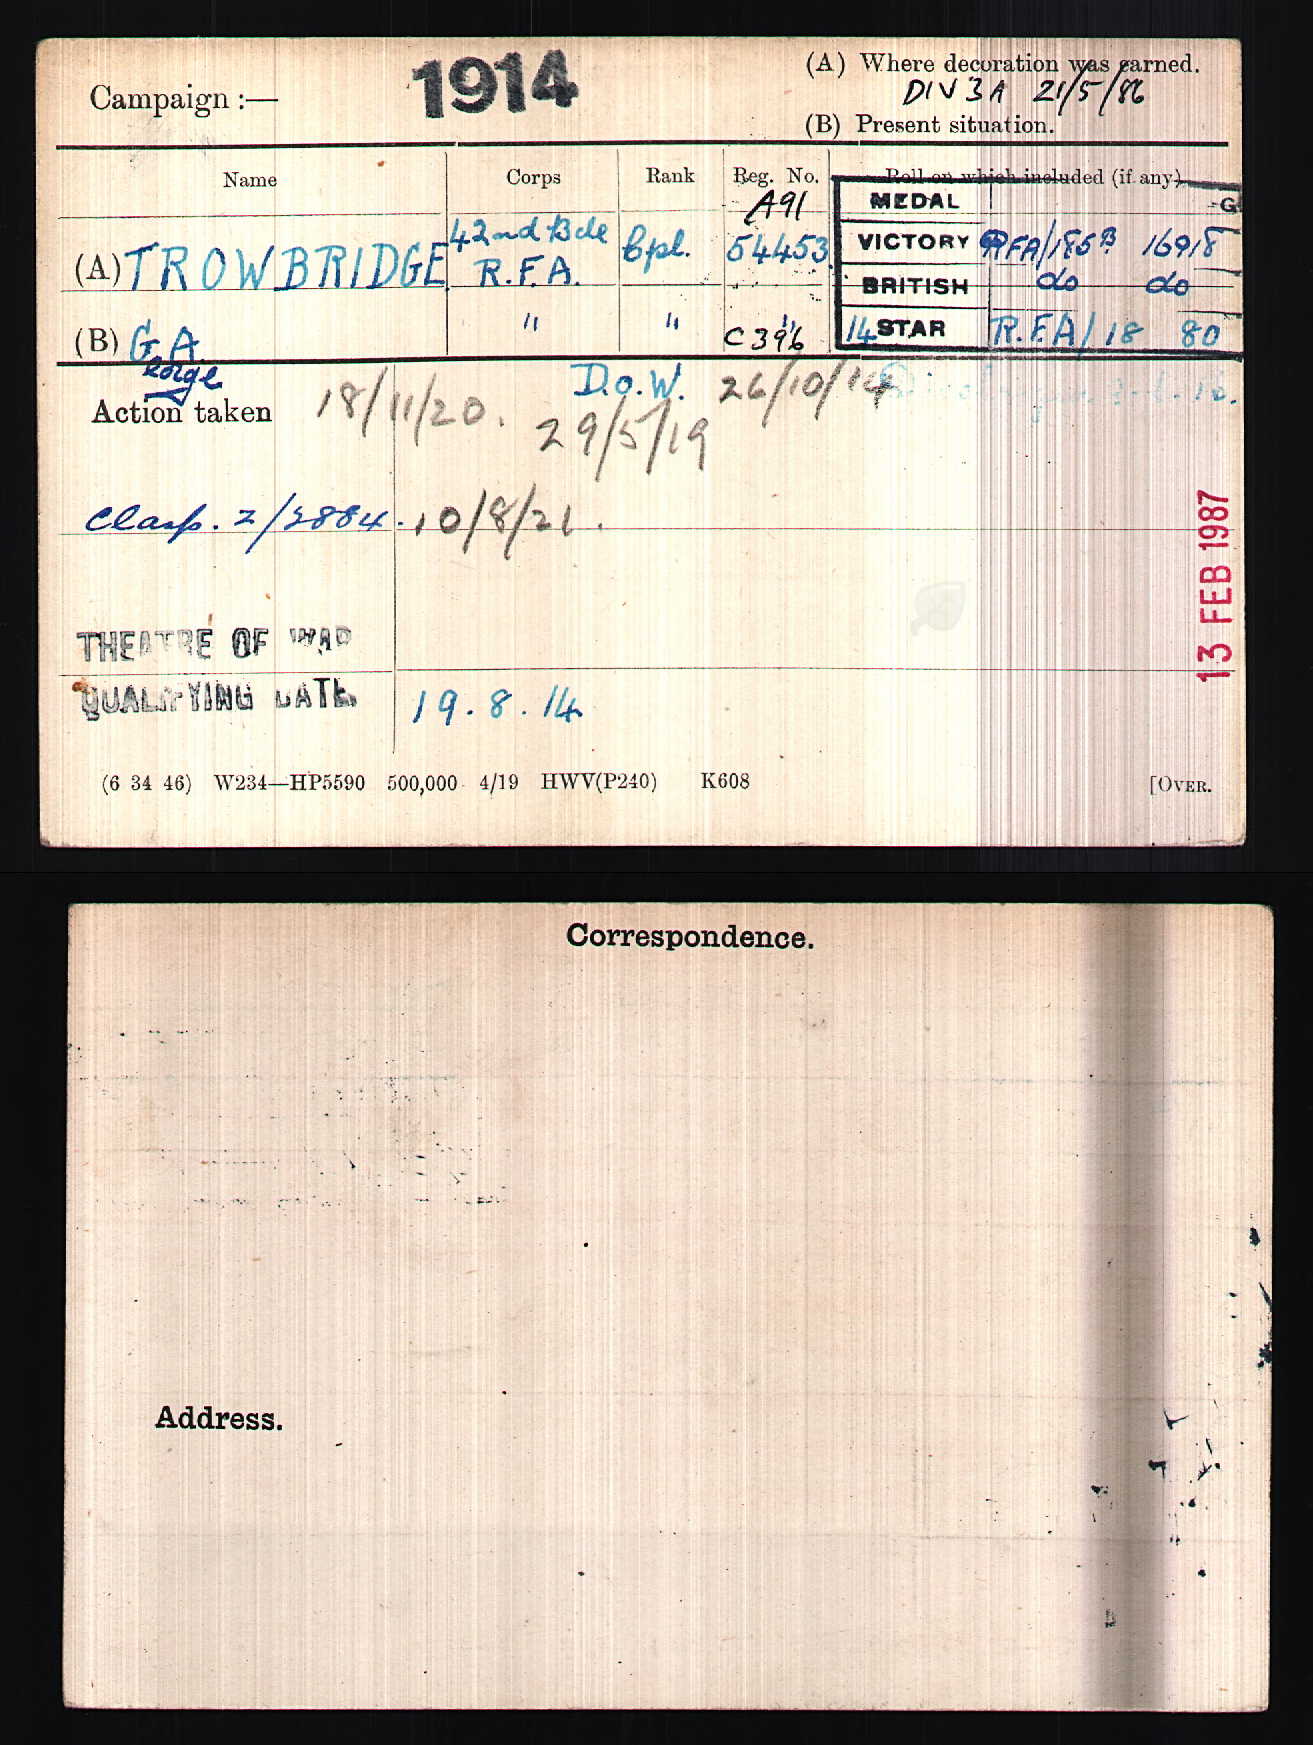 Campaign :— 1914
(A) Where decoration was earned.
DIV 3A 21/5/86
(B) Present situation.
Name Corps Rank Reg. No. Roll on which included (if any)
A91 MEDAL
(A) TROWBRIDGE 42nd Bde R.F.A. Cpl. 54453 VICTORY RFA/185B 16918
BRITISH do do
(B) G. A. " " " C396 14 STAR R.F.A/18 80
George
Action taken 18/11/20. D.o.W. 26/10/14
29/5/19
Clasp. 2/3884. 10/8/21.
13 FEB 1987
THEATRE OF WAR
QUALIFYING DATE. 19.8.14
(6 34 46) W234—HP5590 500,000 4/19 HWV(P240) K608 [OVER.
Correspondence.
Address.